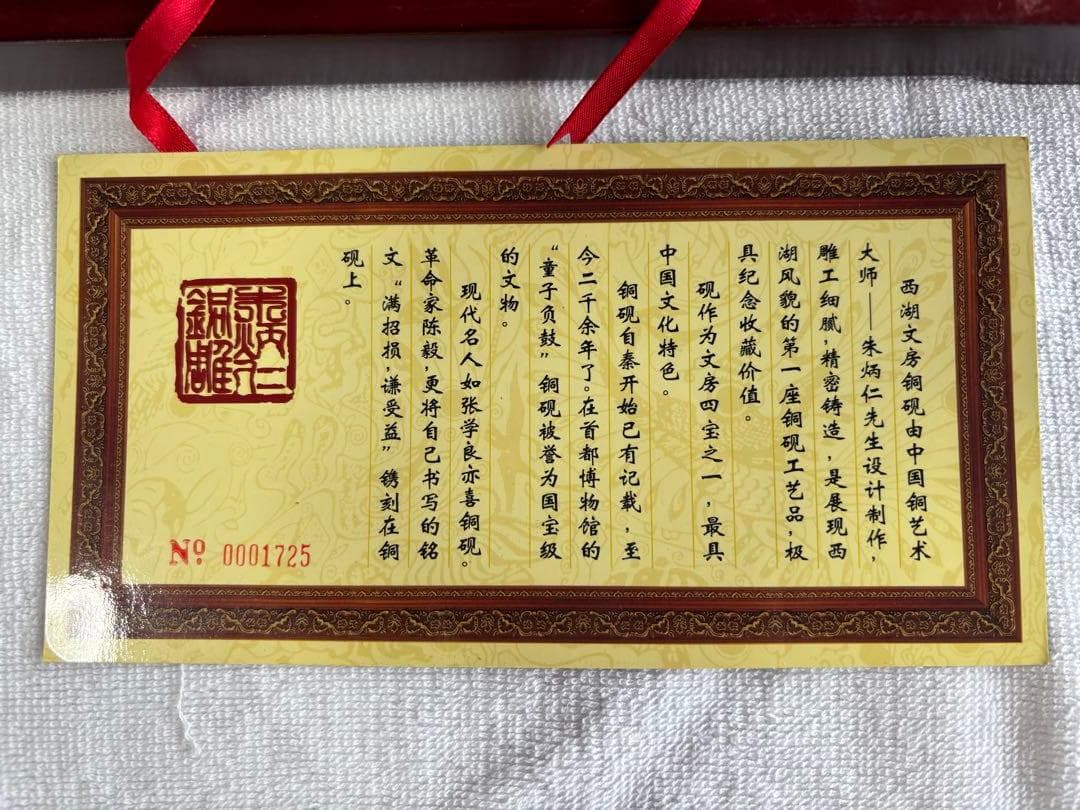 西湖文房铜砚由中国铜艺术
大师——朱炳仁先生设计制作，
雕工细腻，精密铸造，是展现西
湖风貌的第一座铜砚工艺品，极
具纪念收藏价值。
砚作为文房四宝之一，最具
中国文化特色。
铜砚自秦开始已有记载，至
今二千余年了。在首都博物馆的
“童子负鼓”铜砚被誉为国宝级
的文物。
现代名人如张学良亦喜铜砚。
革命家陈毅，更将自己书写的铭
文“满招损，谦受益”镌刻在铜
砚上。
朱炳仁
銅雕
Nº 0001725